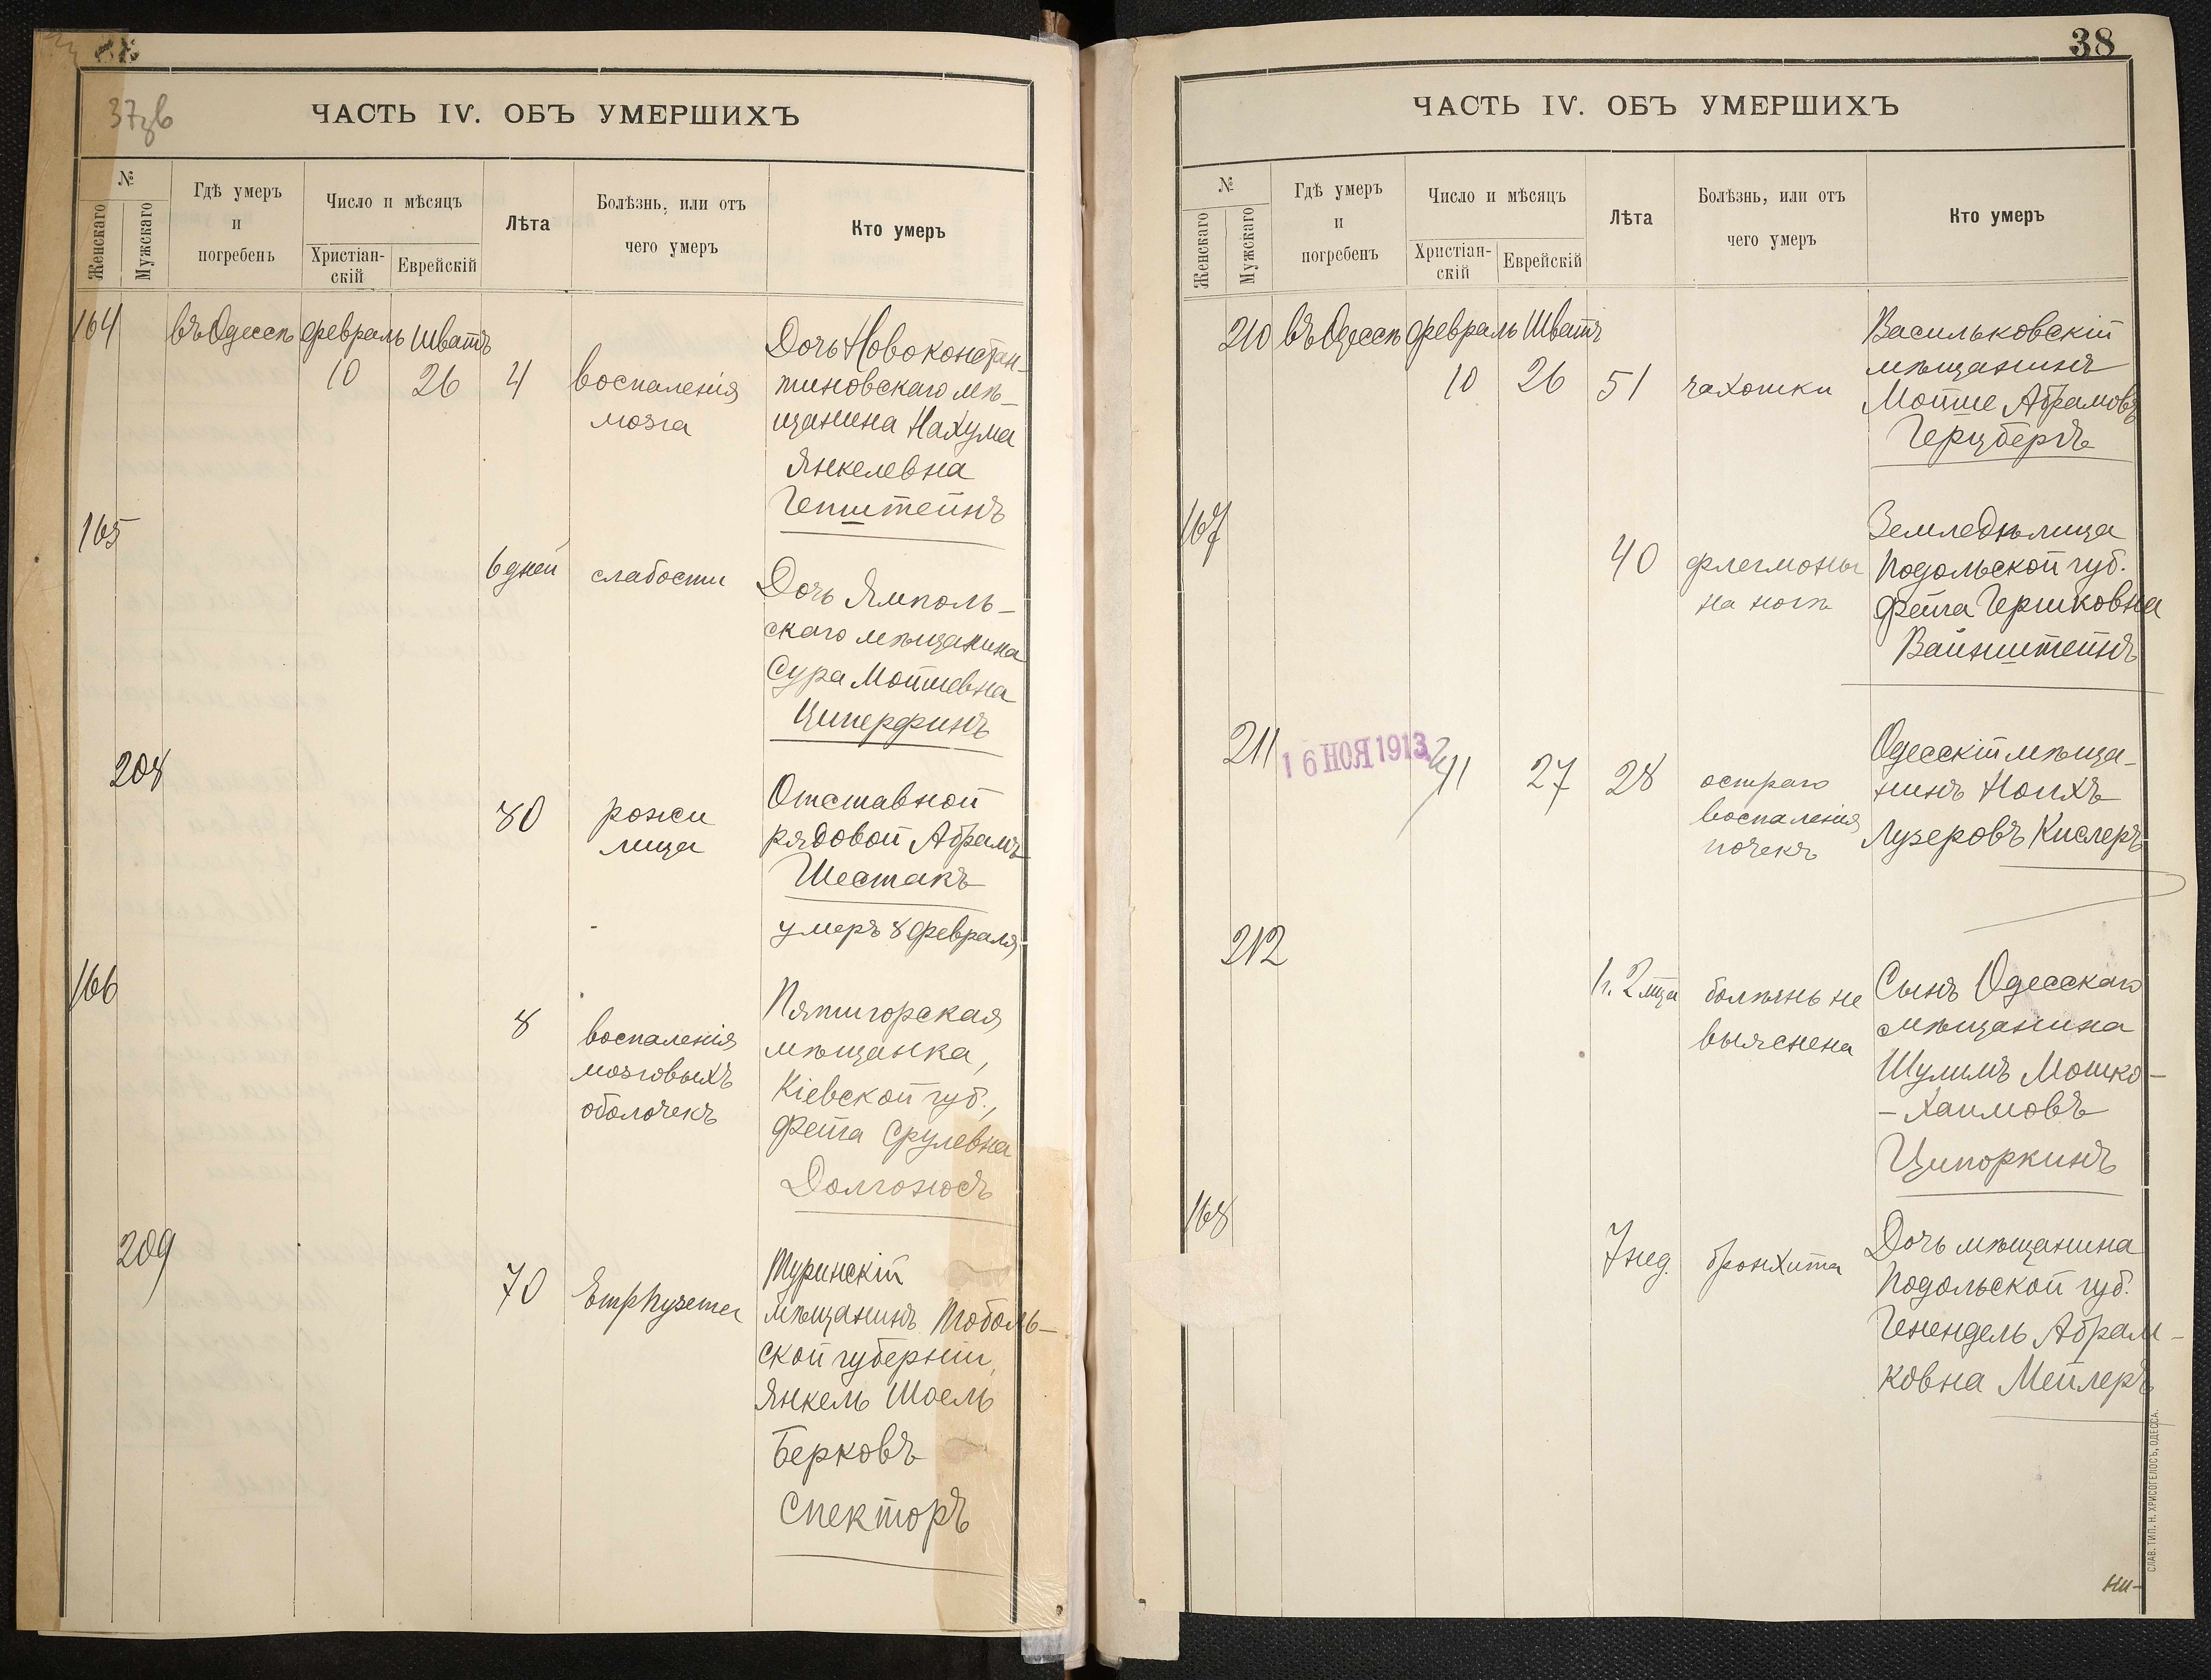 37зв
ЧАСТЬ IV. ОБЪ УМЕРШИХЪ
№
Женскаго
Мужскаго
Гдѣ умеръ
и
погребенъ
Число и мѣсяцъ
Христіан-
скій
Еврейскій
Лѣта
Болѣзнь, или отъ
чего умеръ
Кто умеръ
164 въ Одессѣ февраль Шватъ
10 26 4
воспаленія
мозга
Дочь Новоконстан-
тиновскаго мѣ-
щанина Нахума
Янкелевна
Гепштейнъ
165
6 дней слабости
Дочь Ямполь-
скаго мѣщанина
Сура Мойшевна
Циперфинъ
208
80 рожи
лица
Отставной
рядовой Абрамъ
Шестакъ
умеръ 8 февраля
166
8 воспаленія
мозговыхъ
оболочекъ
Пятигорская
мѣщанка,
Кіевской губ.,
Фейга Срулевна
Долгоносъ
209
70 Emphysema
Туринскій
мѣщанинъ Тоболь-
ской губерніи,
Янкель Шоель
Берковъ
Спекторъ
38
ЧАСТЬ IV. ОБЪ УМЕРШИХЪ
№
Женскаго
Мужскаго
Гдѣ умеръ
и
погребенъ
Число и мѣсяцъ
Христіан-
скій
Еврейскій
Лѣта
Болѣзнь, или отъ
чего умеръ
Кто умеръ
210 въ Одессѣ февраль Шватъ
10 26 51 чахотки
Васильковскій
мѣщанинъ
Мойше Абрамовъ
Герцбергъ
167
40 флегмоны
на ногѣ
Земледѣлица
Подольской губ.
Фейга Гершковна
Вайнштейнъ
211
16 НОЯ 1913
11 27 28
остраго
воспаленія
почекъ
Одесскій мѣща-
нинъ Ноихъ
Лузеровъ Кислеръ
212
1 г. 2 мца болѣзнь не
выяснена
Сынъ Одесскаго
мѣщанина
Шулимъ Мошко-
-Хаимовъ
Ципоркинъ
168
7 нед. бронхита
Дочь мѣщанина
Подольской губ.
Генендель Абрам-
ковна Мейлеръ
СЛАВ. ТИП. Н. ХРИСОГЕЛОСЪ, ОДЕССА.